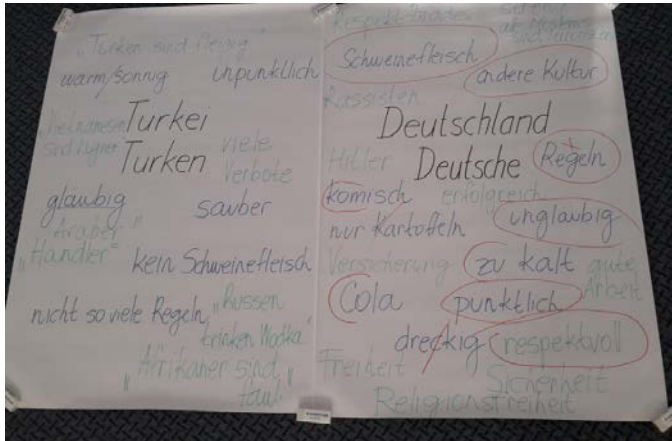 „Türken sind fleißig"
warm/sonnig unpünktlich
Türkei
„Vietnamesen
sind Lügner"
Türken viele
Verbote
gläubig sauber
„Araber"
„Händler"
kein Schweinefleisch
nicht so viele Regeln „Russen
trinken Wodka"
„Afrikaner sind
faul"
Schweinefleisch
andere Kultur
Rassisten
Deutschland
Hitler Deutsche Regeln
komisch erfolgreich
nur Kartoffeln ungläubig
Versicherung zu kalt gute
Arbeit
Cola pünktlich
dreckig respektvoll
Freiheit Sicherheit
Religionsfreiheit